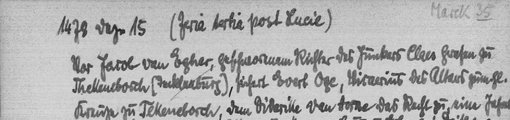 Marck 35
1478 Dez. 15 (feria tertia post Lucie)
Vor Jacob van Egher, geschworenem Richter des Junkers Claes Grafen zu
Thekeneborch (Tecklenburg), sichert Evert Oge, Vicarius des Altars zum hl.
Kreuze zu Tekeneborch, dem Diderike van dorne das Recht zu, eine Jahr